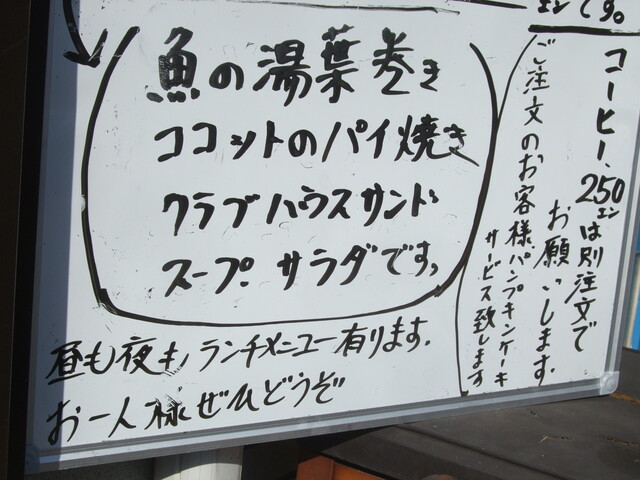 エンです。
魚の湯葉巻き
ココットのパイ焼き
クラブハウスサンド
スープ.サラダです。
昼も夜も,ランチメニュー有ります.
お一人様ぜひどうぞ
コーヒー、250エン
は別注文で
お願いします.
ご注文のお客様パンプキンケーキ
サービス致します